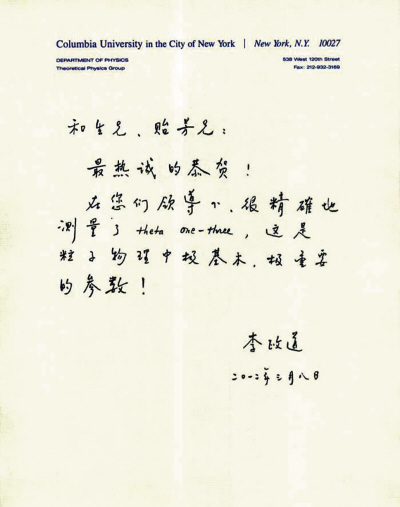 Columbia University in the City of New York | New York, N.Y. 10027
DEPARTMENT OF PHYSICS 538 West 120th Street
Theoretical Physics Group Fax: 212-932-3169
和生兄、贻芳兄:
最热诚的恭贺!
在您们领导下、很精確地
测量了 theta one-three, 这是
粒子物理中极基本、极重要
的参数!
李政道
二〇一二年三月八日